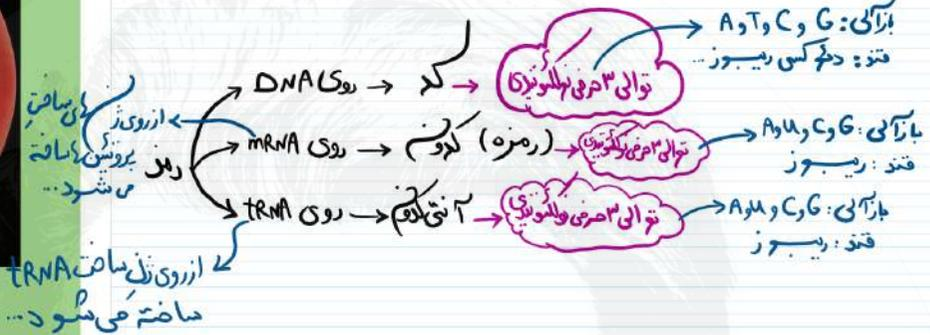 رمز
روی DNA → کد → توالی ۳ حرفی نوکلئوتیدی → بازآلی: A و T و C و G
قند: دئوکسی ریبوز...
روی mRNA → کدون (رمزه) → توالی ۳ حرفی نوکلئوتیدی → بازآلی: A و U و C و G
قند: ریبوز
روی tRNA → آنتی کدون → توالی ۳ حرفی نوکلئوتیدی → بازآلی: A و U و C و G
قند: ریبوز
از روی ژن های ساخت
پروتئین ها ساخته
می شود...
از روی ژن ساخت tRNA
ساخته می شود...